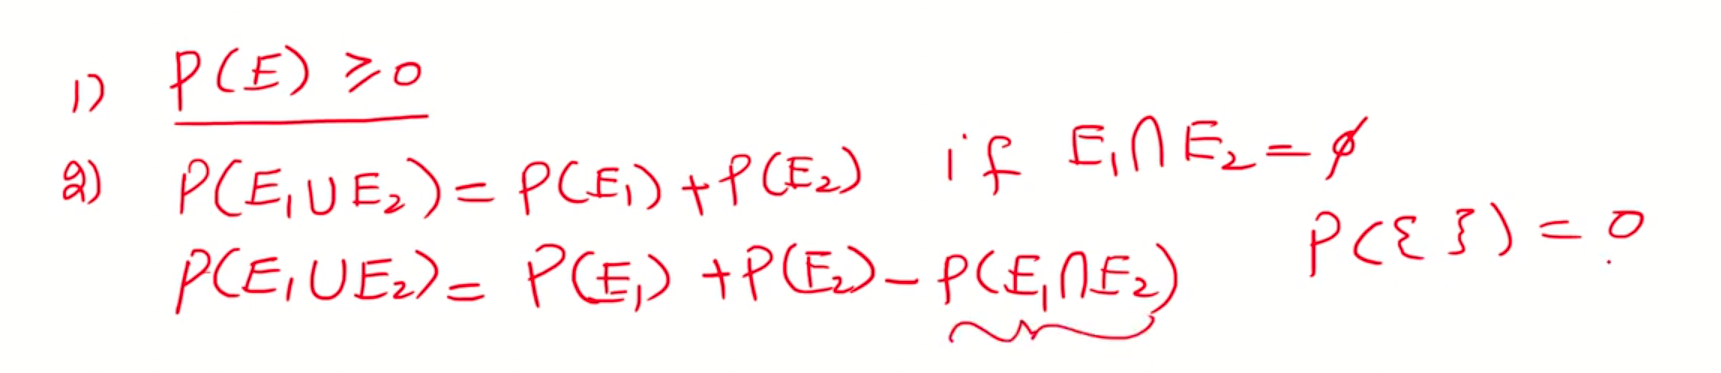 1) P(E) ≥ 0
2) P(E₁ ∪ E₂) = P(E₁) + P(E₂) if E₁ ∩ E₂ = ∅
P(E₁ ∪ E₂) = P(E₁) + P(E₂) - P(E₁ ∩ E₂) P({ }) = 0